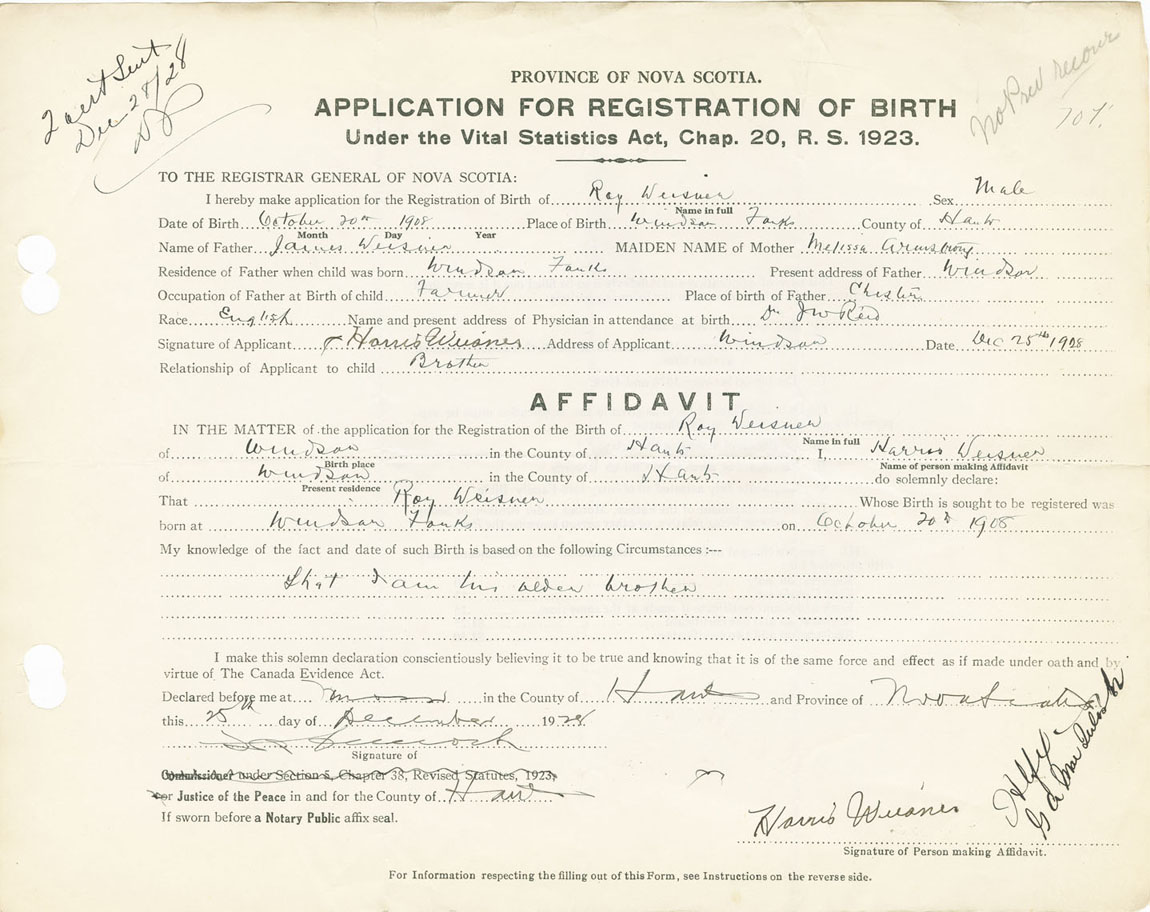 2 cert Sent
Dec 28/28
No Pred record
PROVINCE OF NOVA SCOTIA.
APPLICATION FOR REGISTRATION OF BIRTH
Under the Vital Statistics Act, Chap. 20, R. S. 1923.
TO THE REGISTRAR GENERAL OF NOVA SCOTIA:
I hereby make application for the Registration of Birth of Roy Weisner Sex Male
Name in full
Date of Birth October 20th 1908 Place of Birth Windsor Forks County of Hants
Month Day Year
Name of Father James Weisner MAIDEN NAME of Mother Melissa Armstrong
Residence of Father when child was born Windsor Forks Present address of Father Windsor
Occupation of Father at Birth of child Farmer Place of birth of Father Chester
Race English Name and present address of Physician in attendance at birth Dr J W Reid
Signature of Applicant Harris Weisner Address of Applicant Windsor Date Dec 25th 1928
Relationship of Applicant to child Brother
AFFIDAVIT
IN THE MATTER of the application for the Registration of the Birth of Roy Weisner
Name in full
of Windsor in the County of Hants I, Harris Weisner
Birth place Name of person making Affidavit
of Windsor in the County of Hants do solemnly declare:
Present residence
That Roy Weisner Whose Birth is sought to be registered was
born at Windsor Forks on October 20th 1908
My knowledge of the fact and date of such Birth is based on the following Circumstances :---
that I am his older brother
I make this solemn declaration conscientiously believing it to be true and knowing that it is of the same force and effect as if made under oath and by
virtue of The Canada Evidence Act.
Declared before me at in the County of Hants and Province of Nova Scotia
this 25th day of December 1928
Signature of
Commissioner under Section 5, Chapter 38, Revised Statutes, 1923,
or Justice of the Peace in and for the County of Hants
If sworn before a Notary Public affix seal.
Harris Weisner
Signature of Person making Affidavit.
For Information respecting the filling out of this Form, see Instructions on the reverse side.